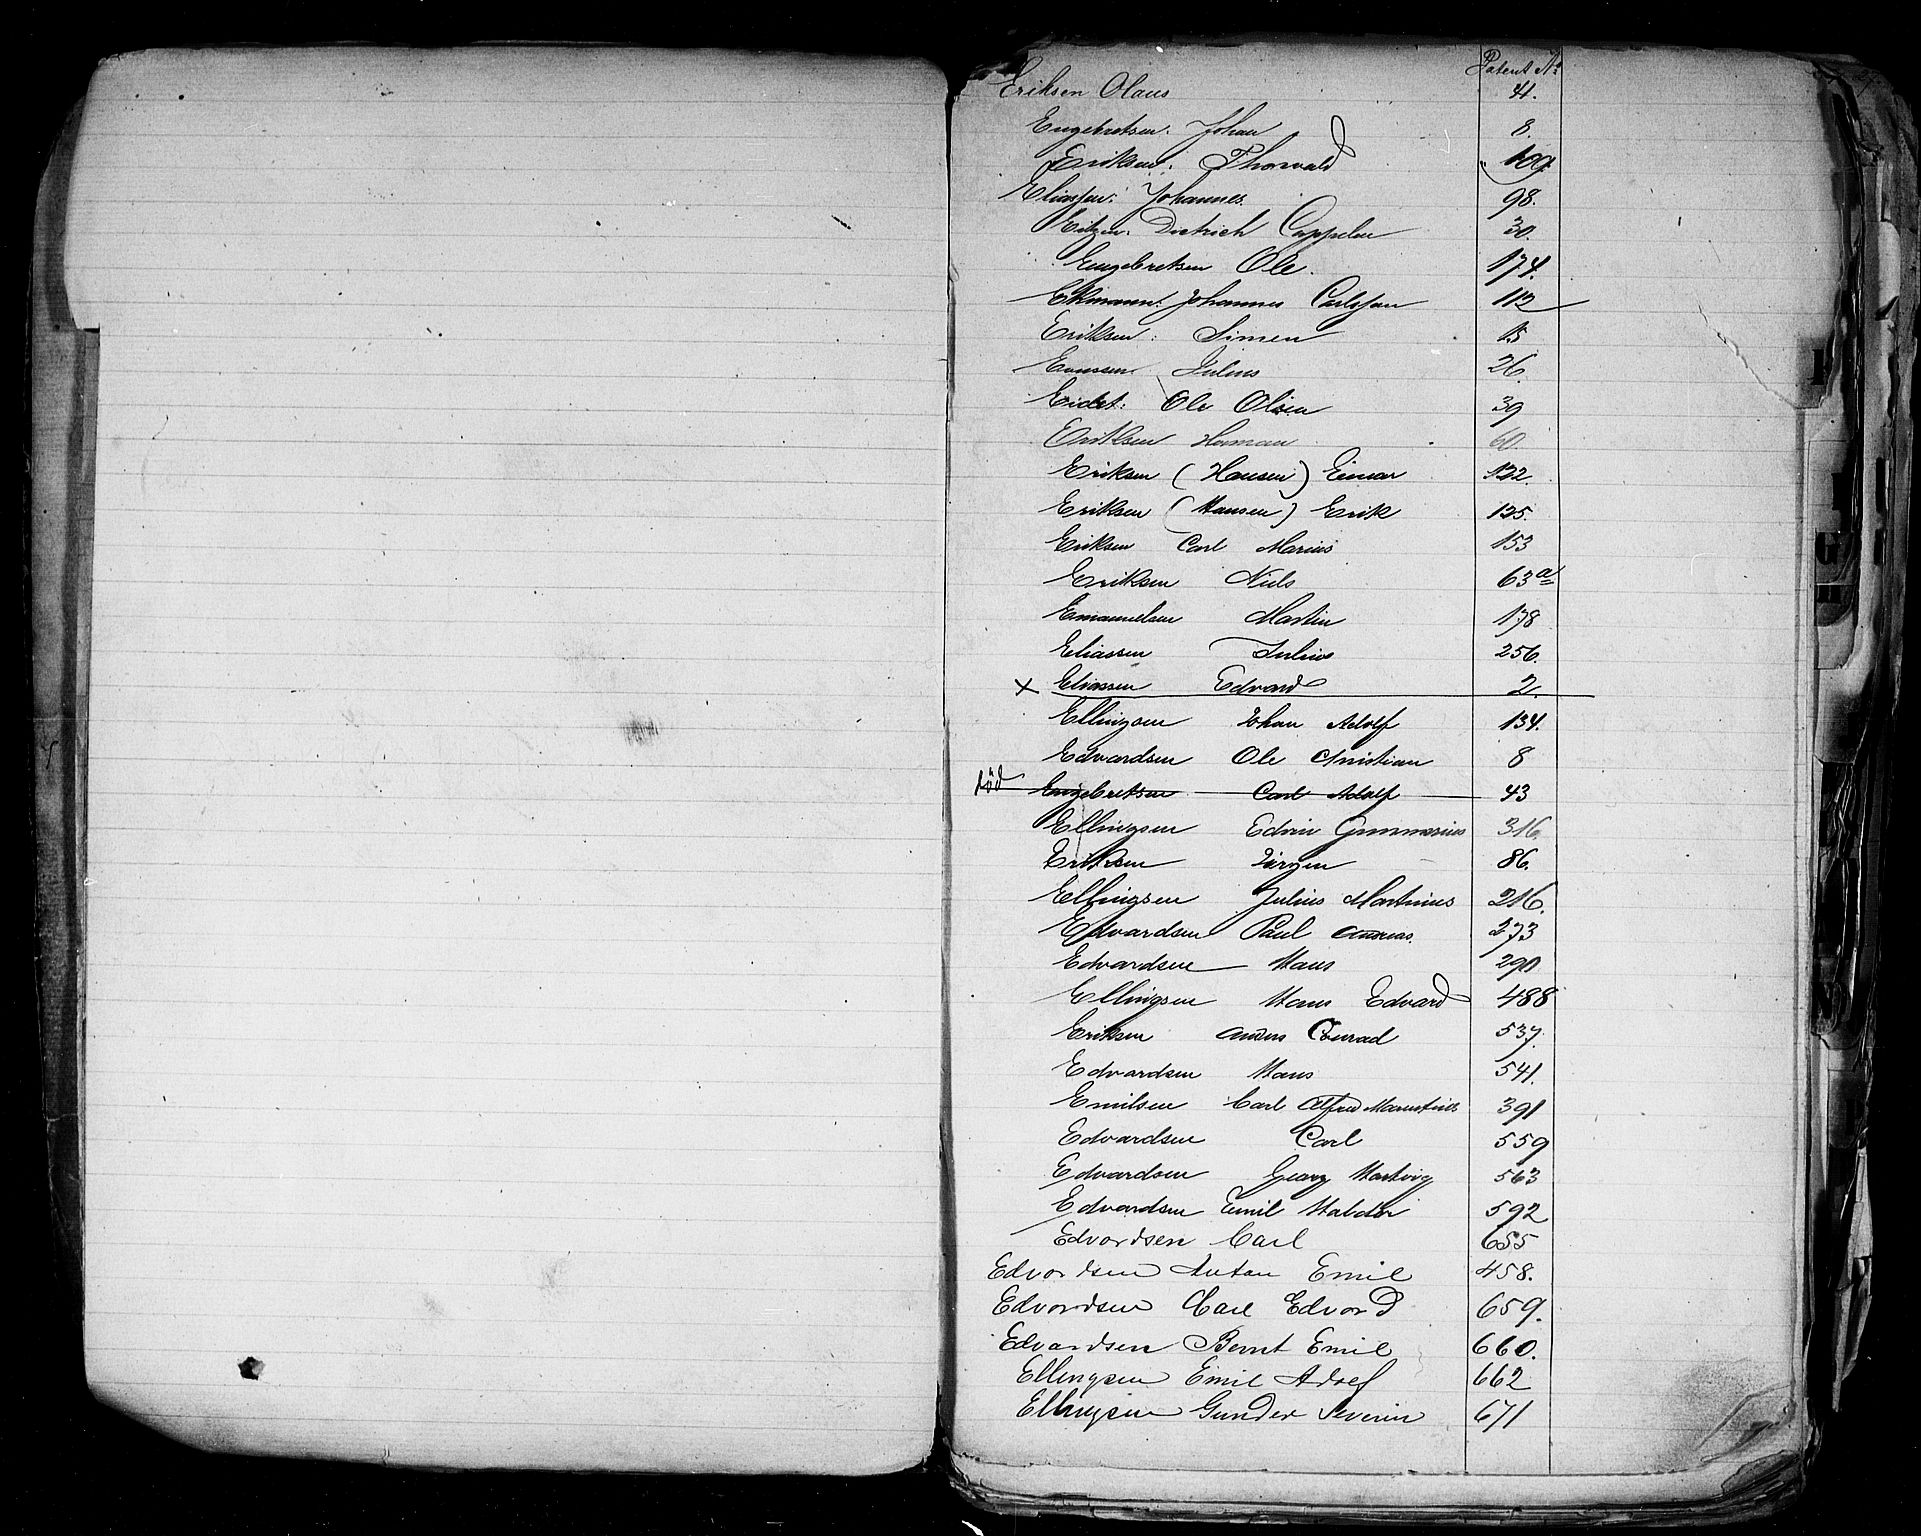 Patent No
Eriksen Olaus 41.
Engebretsen. Johan 8.
Eriksen: Thorvald 109
Eliassen: Johannes 98.
Eitzen. Dietrich Cappelen 30.
Engebretsen Ole. 174.
Ekmann. Johannes Carlsson 112
Eriksen: Simen 15
Evensen Julius 26
Eidet: Ole Olsen 39
Eriksen Herman 60
Eriksen (Hansen) Einar 122.
Eriksen (Hansen) Erik 125.
Eriksen Carl Marius 153
Eriksen Niels 63 a
Emanuelsen Martin 178
Eliassen Julius 256.
x Eliassen Edvard 2.
Ellingsen Johan Adolf 134.
Edvardsen Ole Christian 8
död Engebretsen Carl Adolf 43
Ellingsen Edvin Gunmarius 316.
Eriksen Jörgen 86.
Ellingsen Julius Martinius 216.
Edvardsen Paul Andreas. 273
Edvardsen Hans 290
Ellingsen Hans Edvard 488
Eriksen Anders Conrad 537.
Edvardsen Hans 541.
Emilsen Carl Alfred 391
Edvardsen Carl 559
Edvardsen Georg Hartvig 563
Edvardsen Emil Haldor 592
Edvardsen Carl 655
Edvardsen Anton Emil 458.
Edvardsen Carl Edvard 659.
Edvardsen Bernt Emil 660.
Ellingsen Emil Adolf 662
Ellingsen Gunder Severin 671